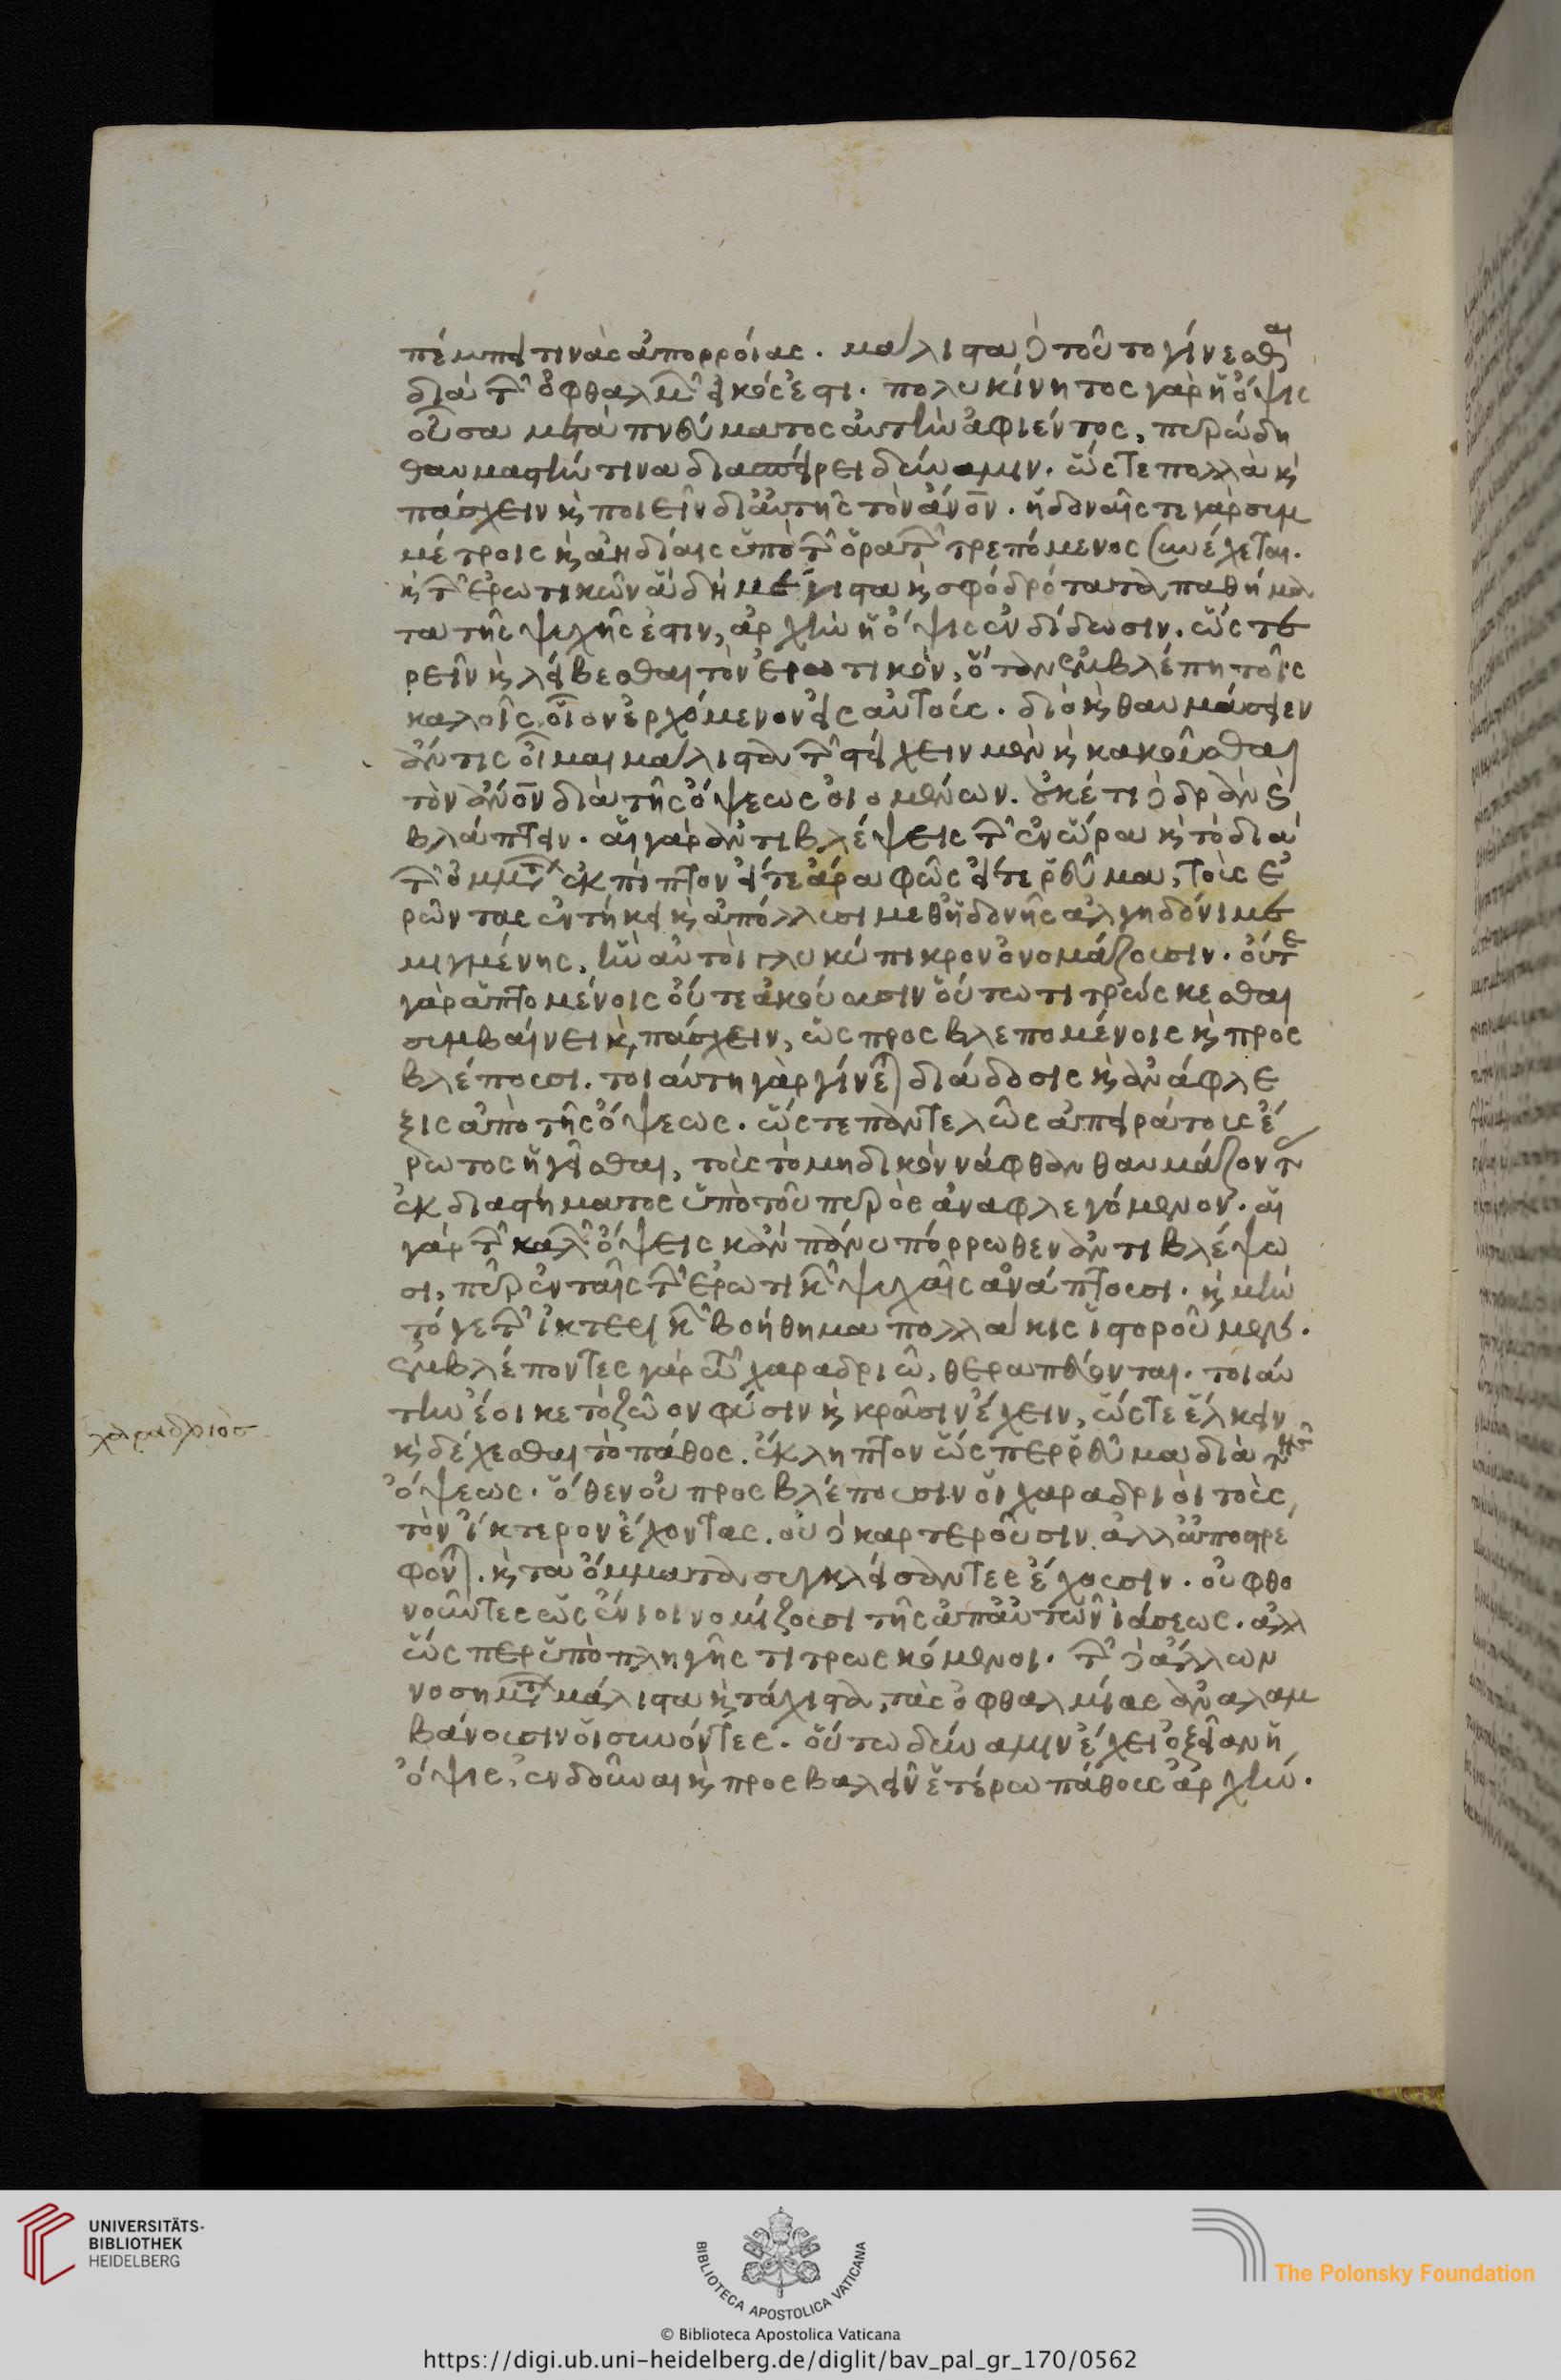 πέμπει τινὰς ἀπορροίας. μάλιστα δὲ τοῦτο γίνεσθαι
διὰ τῶν ὀφθαλμῶν εἰκός ἐστι. πολυκίνητος γὰρ ἡ ὄψις
οὖσα μετὰ πνεύματος αὐγὴν ἀφιέντος, πυρώδη
θαυμαστήν τινα διασπείρει δύναμιν. ὥστε πολλὰ καὶ
πάσχειν καὶ ποιεῖν δι' αὐτῆς τὸν ἄνον. ἡδοναῖς τε γὰρ συμ
μέτροις καὶ ἀηδίαις ὑπὸ τῶν ὁρατῶν τρεπόμενος συνέχεται.
καὶ τῶν ἐρωτικῶν ἃ δὴ μέγιστα καὶ σφοδρότατα παθήμα
τα τῆς ψυχῆς ἐστιν, ἀρχὴν ἡ ὄψις ἐνδίδωσιν. ὥστε
ρεῖν καὶ λείβεσθαι τὸν ἐρωτικὸν, ὅταν ἐμβλέπη τοῖς
καλοῖς οἷον ἐρχόμενον εἰς αὐτούς. διὸ καὶ θαυμάσειεν
ἄν τις οἶμαι μάλιστα τῶν πάσχειν μὲν καὶ κακοῦσθαι
τὸν ἄνον διὰ τῆς ὄψεως οἰομένων. οὐκέτι δὲ δρᾶν καὶ
βλάπτειν. αἱ γὰρ ἀντιβλέψεις τῶν ἐν ὥρα καὶ τὸ διὰ
τῶν ὀμμάτων ἐκπίπτον εἴτε ἄρα φῶς εἴτε ῥεῦμα, τοὺς ἐ
ρῶντας ἐντήκει καὶ ἀπόλλυσι μεθ' ἡδονῆς ἀλγηδόνι με
μιγμένης, ἣν αὐτοὶ γλυκύπικρον ὀνομάζουσιν. οὔτε
γὰρ ἁπτομένοις οὔτε ἀκούουσιν οὕτω τιτρώσκεσθαι
συμβαίνει καὶ πάσχειν, ὡς προσβλεπομένοις καὶ προς
βλέπουσι. τοιαύτη γὰρ γίνεται διάδοσις καὶ ἀνάφλε
ξις ἀπὸ τῆς ὄψεως. ὥστε παντελῶς ἀπειράτους ἔ
ρωτος ἡγεῖσθαι, τοὺς τὸ μηδικὸν νάφθαν θαυμάζοντας
ἐκ διαστήματος ὑπὸ τοῦ πυρὸς ἀναφλεγόμενον. αἱ
γὰρ τῶν καλῶν ὄψεις κἂν πάνυ πόρρωθεν ἀντιβλέψω
σι, πῦρ ἐν ταῖς τῶν ἐρωτικῶν ψυχαῖς ἀνάπτουσι. καὶ μὴν
τό γε τῶν ἰκτερικῶν βοήθημα πολλάκις ἱστοροῦμεν.
ἐμβλέποντες γὰρ τῶ χαραδριῶ, θεραπεύονται. τοιαύ
την ἔοικε τὸ ζῶον φύσιν καὶ κρᾶσιν ἔχειν, ὥστε ἕλκειν
καὶ δέχεσθαι τὸ πάθος. ἐκπίπτον ὥσπερ ῥεῦμα διὰ τῆς
ὄψεως. ὅθεν οὐ προσβλέπουσιν οἱ χαραδριοὶ τοὺς
τὸν ἴκτερον ἔχοντας. οὐδὲ καρτεροῦσιν ἀλλ' ἀποστρέ
φονται. καὶ τὰ ὄμματα συγκλείσαντες ἔχουσιν. οὐ φθο
νοῦντες ὡς ἔνιοι νομίζουσι τῆς ἀπ' αὐτῶν ἰάσεως. ἀλλ
ὥσπερ ὑπὸ πληγῆς τιτρωσκόμενοι. τῶν δὲ ἄλλων
νοσημάτων μάλιστα καὶ τάχιστα, τὰς ὀφθαλμίας ἀναλαμ
βάνουσιν οἱ συνόντες. οὕτω δύναμιν ἔχει ὀξεῖαν ἡ
ὄψις, ἐνδοῦναι καὶ προσβαλεῖν ἑτέρω πάθους ἀρχήν.
χαραδριὸσ
UNIVERSITÄTS-
BIBLIOTHEK
HEIDELBERG
BIBLIOTECA APOSTOLICA VATICANA
The Polonsky Foundation
© Biblioteca Apostolica Vaticana
https://digi.ub.uni-heidelberg.de/diglit/bav_pal_gr_170/0562